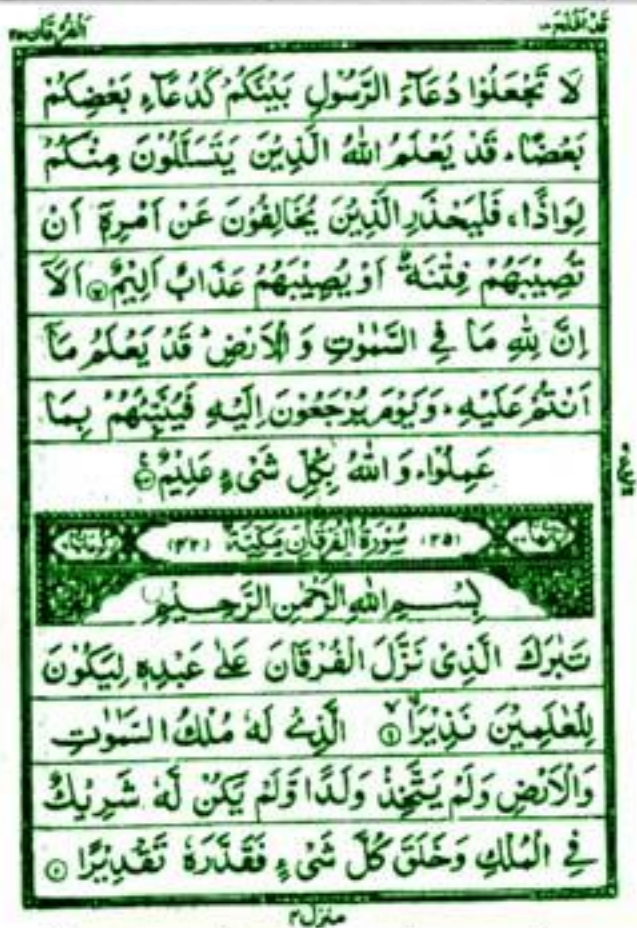 قد افلح ۱۸
الفرقان ۲۵
لَا تَجْعَلُوْا دُعَآءَ الرَّسُوْلِ بَيْنَكُمْ كَدُعَآءِ بَعْضِكُمْ
بَعْضًا ؕ قَدْ يَعْلَمُ اللهُ الَّذِيْنَ يَتَسَلَّلُوْنَ مِنْكُمْ
لِوَاذًا ۚ فَلْيَحْذَرِ الَّذِيْنَ يُخَالِفُوْنَ عَنْ اَمْرِهٖٓ اَنْ
تُصِيْبَهُمْ فِتْنَةٌ اَوْ يُصِيْبَهُمْ عَذَابٌ اَلِيْمٌ ۝ اَلَآ
اِنَّ لِلّٰهِ مَا فِي السَّمٰوٰتِ وَ الْاَرْضِ ؕ قَدْ يَعْلَمُ مَآ
اَنْتُمْ عَلَيْهِ ؕ وَ يَوْمَ يُرْجَعُوْنَ اِلَيْهِ فَيُنَبِّئُهُمْ بِمَا
عَمِلُوْا ؕ وَ اللهُ بِكُلِّ شَىْءٍ عَلِيْمٌ ۝
(۲۵) سُوْرَةُ الْفُرْقَانِ مَكِّيَّةٌ (۴۲)
بِسْمِ اللهِ الرَّحْمٰنِ الرَّحِيْمِ
تَبٰرَكَ الَّذِىْ نَزَّلَ الْفُرْقَانَ عَلٰى عَبْدِهٖ لِيَكُوْنَ
لِلْعٰلَمِيْنَ نَذِيْرَا ۝۱ الَّذِىْ لَهٗ مُلْكُ السَّمٰوٰتِ
وَالْاَرْضِ وَلَمْ يَتَّخِذْ وَلَدًا وَّلَمْ يَكُنْ لَّهٗ شَرِيْكٌ
فِي الْمُلْكِ وَخَلَقَ كُلَّ شَىْءٍ فَقَدَّرَهٗ تَقْدِيْرًا ۝۲
منزل ۴